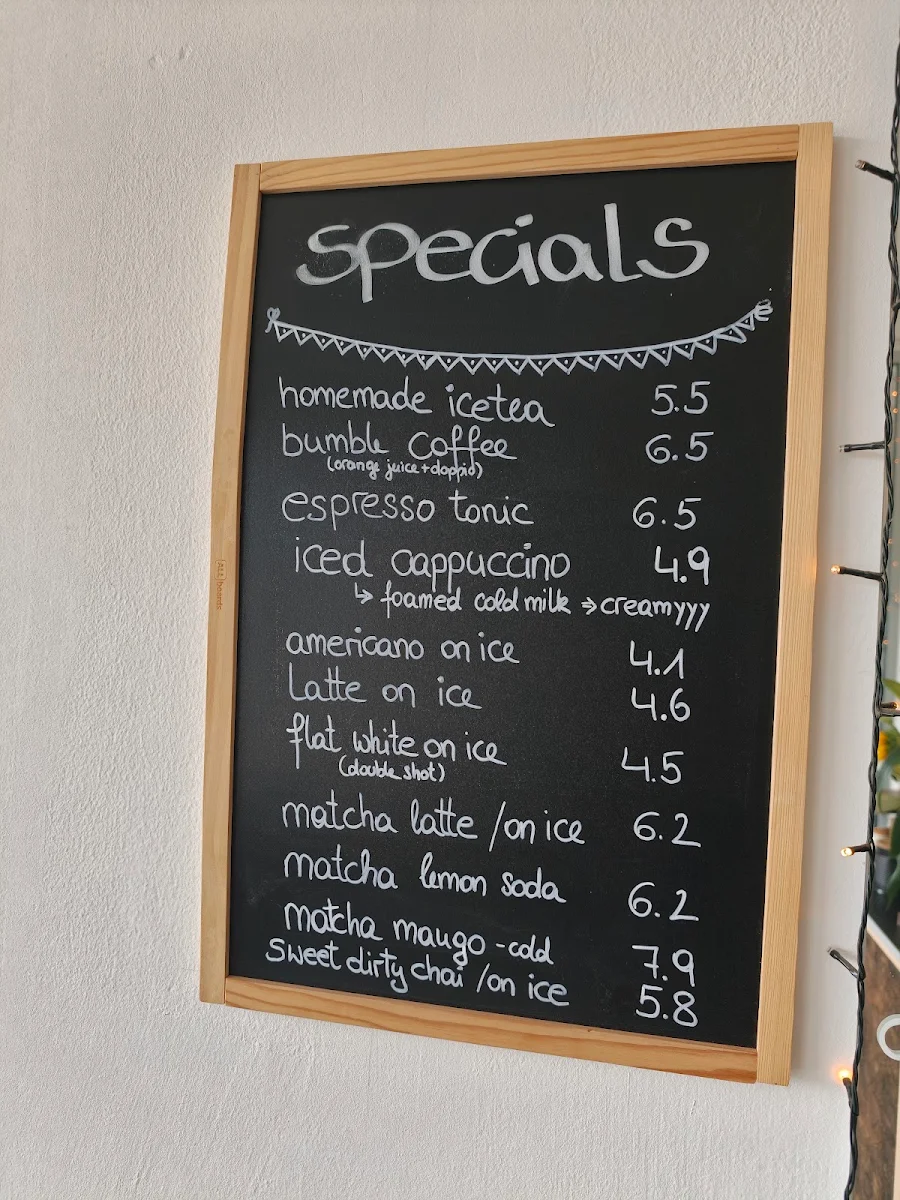 specials
homemade icetea 5.5
bumble coffee 6.5
(orange juice + doppio)
espresso tonic 6.5
iced cappuccino 4.9
↳ foamed cold milk ⇒ creamyyy
americano on ice 4.1
Latte on ice 4.6
flat white on ice 4.5
(double shot)
matcha latte /on ice 6.2
matcha lemon soda 6.2
matcha mango - cold 7.9
Sweet dirty chai /on ice 5.8